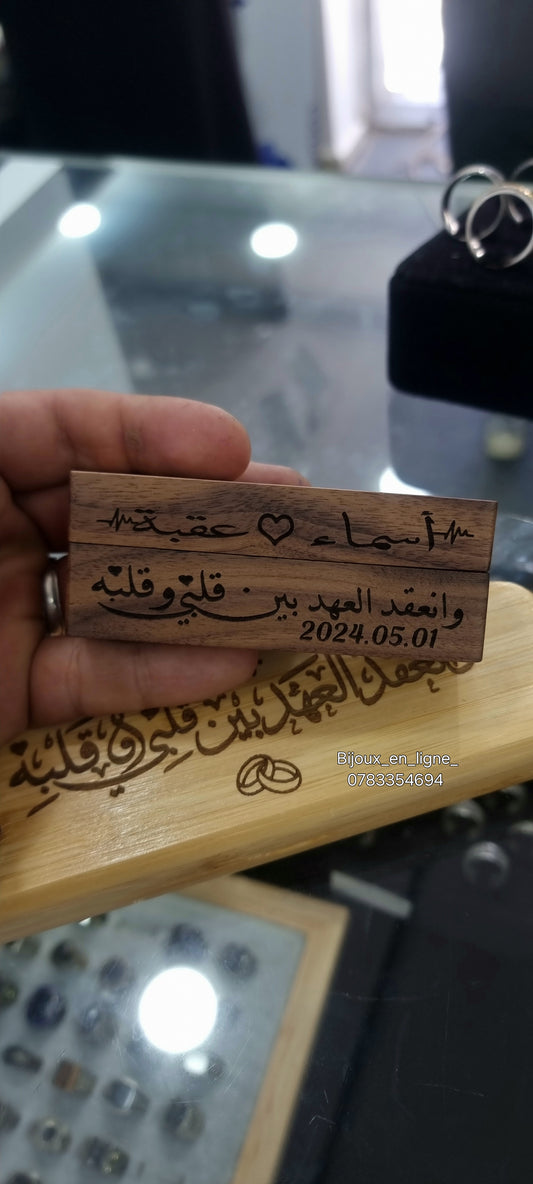 أسماء ♡ عقبة
وانعقد العهد بين قلبي وقلبه
2024.05.01
وانعقد العهد بين قلبي و قلبه
Bijoux_en_ligne_
0783354694